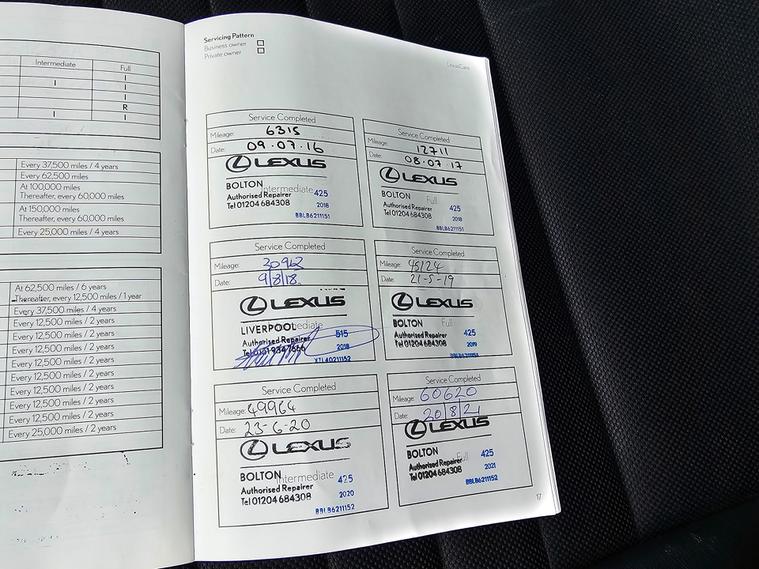 Intermediate Full
I I
I
R
I I
Every 37,500 miles / 4 years
Every 62,500 miles
At 100,000 miles
Thereafter, every 60,000 miles
At 150,000 miles
Thereafter, every 60,000 miles
Every 25,000 miles / 4 years
At 62,500 miles / 6 years
Thereafter, every 12,500 miles / 1 year
Every 37,500 miles / 4 years
Every 12,500 miles / 2 years
Every 12,500 miles / 2 years
Every 12,500 miles / 2 years
Every 12,500 miles / 2 years
Every 12,500 miles / 2 years
Every 12,500 miles / 2 years
Every 12,500 miles / 2 years
Every 12,500 miles / 2 years
Every 25,000 miles / 2 years
Servicing Pattern
Business owner
Private owner
LexusCare
Service Completed
Mileage: 6315
Date: 09.07.16
LEXUS
Intermediate
BOLTON 425
Authorised Repairer 2018
Tel 01204 684308
BBLB6211151
Service Completed
Mileage: 12711
Date: 08.07 17
LEXUS
Full
BOLTON 425
Authorised Repairer 2018
Tel 01204 684308
BBLB6211151
Service Completed
Mileage: 30962
Date: 9/8/18
LEXUS
Intermediate
LIVERPOOL 515
Authorised Repairer 2018
Service Completed
Mileage: 45124
Date: 21-5-19
LEXUS
Full
BOLTON 425
Authorised Repairer 2019
Tel 01204 684308
Service Completed
Mileage: 49964
Date: 23-6-20
LEXUS
Intermediate
BOLTON 425
Authorised Repairer 2020
Tel 01204 684308
BBLB6211152
Service Completed
Mileage: 60620
Date: 20/8/21
LEXUS
Full
BOLTON 425
Authorised Repairer 2021
Tel 01204 684308
BBLB6211152
17